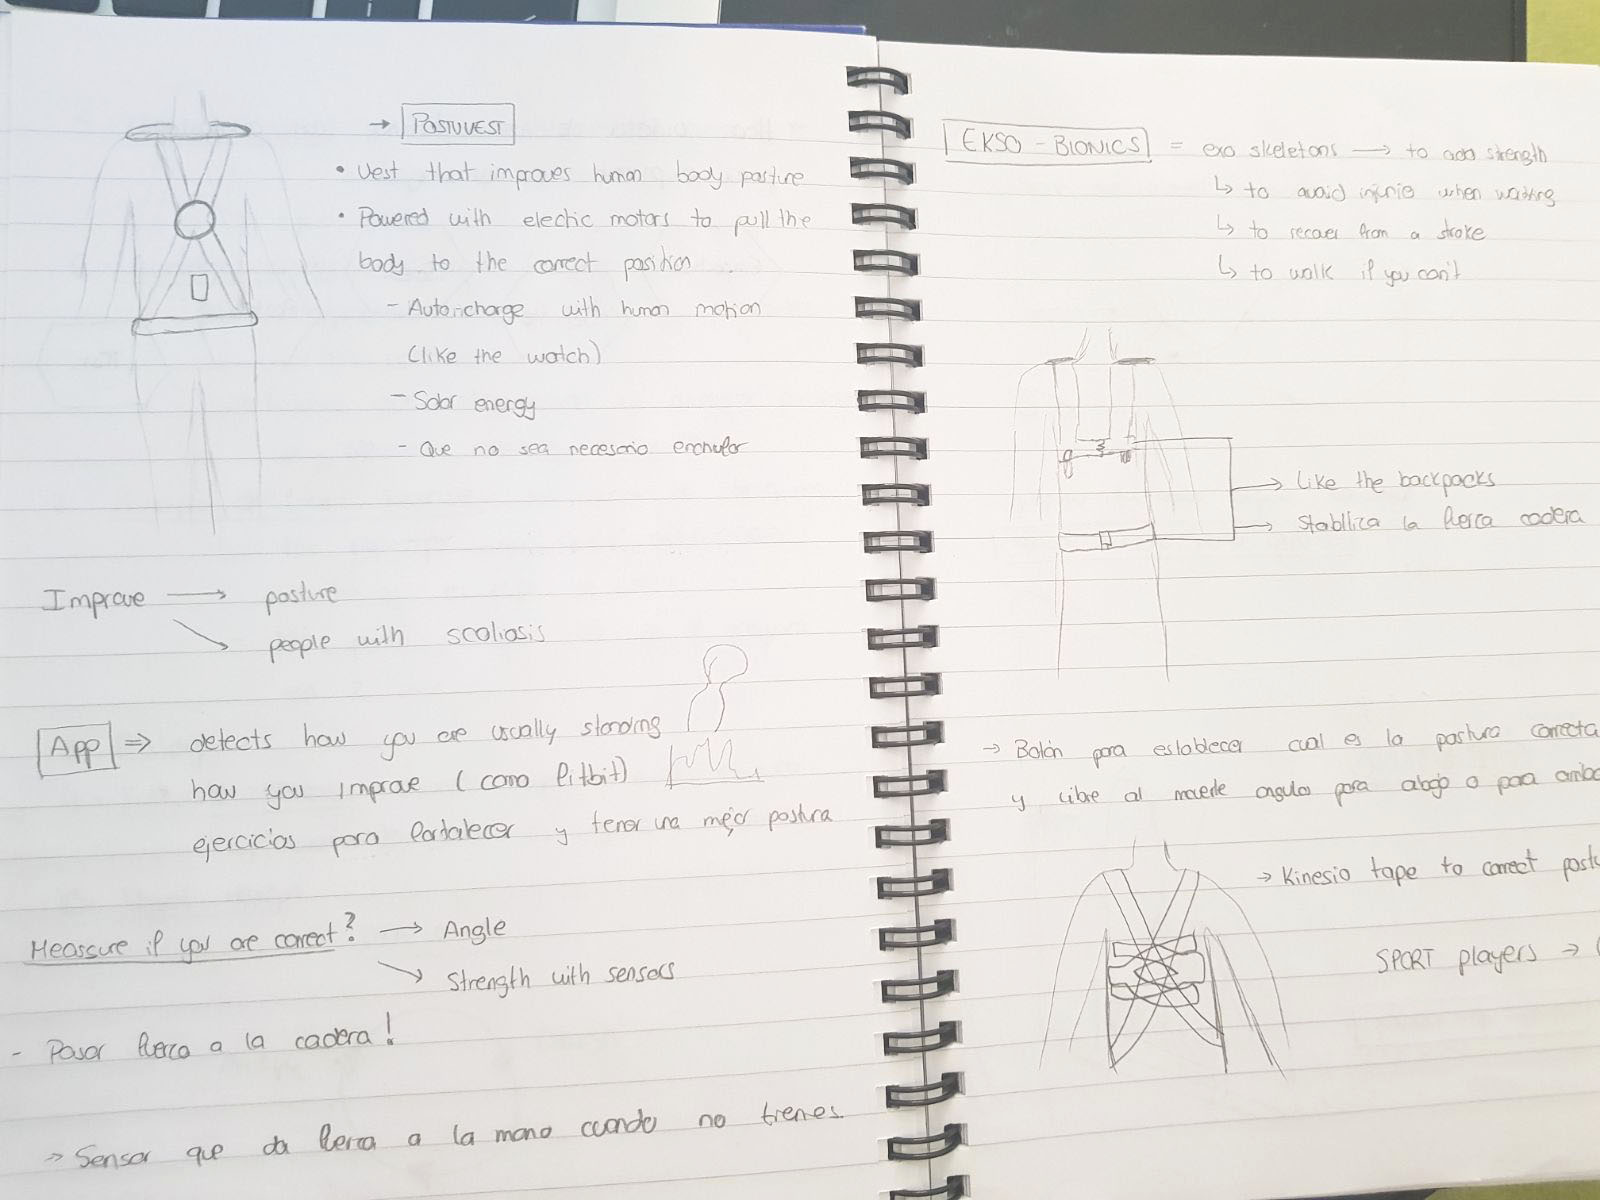 → POSTUVEST
• Vest that improves human body posture
• Powered with electric motors to pull the
body to the correct position
- Auto-charge with human motion
(like the watch)
- Solar energy
- Que no sea necesario enchufar
Improve → posture
people with scoliosis
App ⇒ detects how you are usually standing
how you improve (como fitbit)
ejercicios para fortalecer y tener una mejor postura
Meassure if you are correct? → Angle
→ Strength with sensors
- Pasar fuerza a la cadera!
→ Sensor que da fuerza a la mano cuando no tienes
EKSO - BIONICS = exo skeletons → to add strength
↳ to avoid injuries when working
↳ to recover from a stroke
↳ to walk if you can't
→ Like the backpacks
→ Stabiliza la fuerza cadera
→ Botón para establecer cual es la postura correcta
y libre al moverte angulos para abajo o para
→ Kinesio tape to correct
SPORT players →